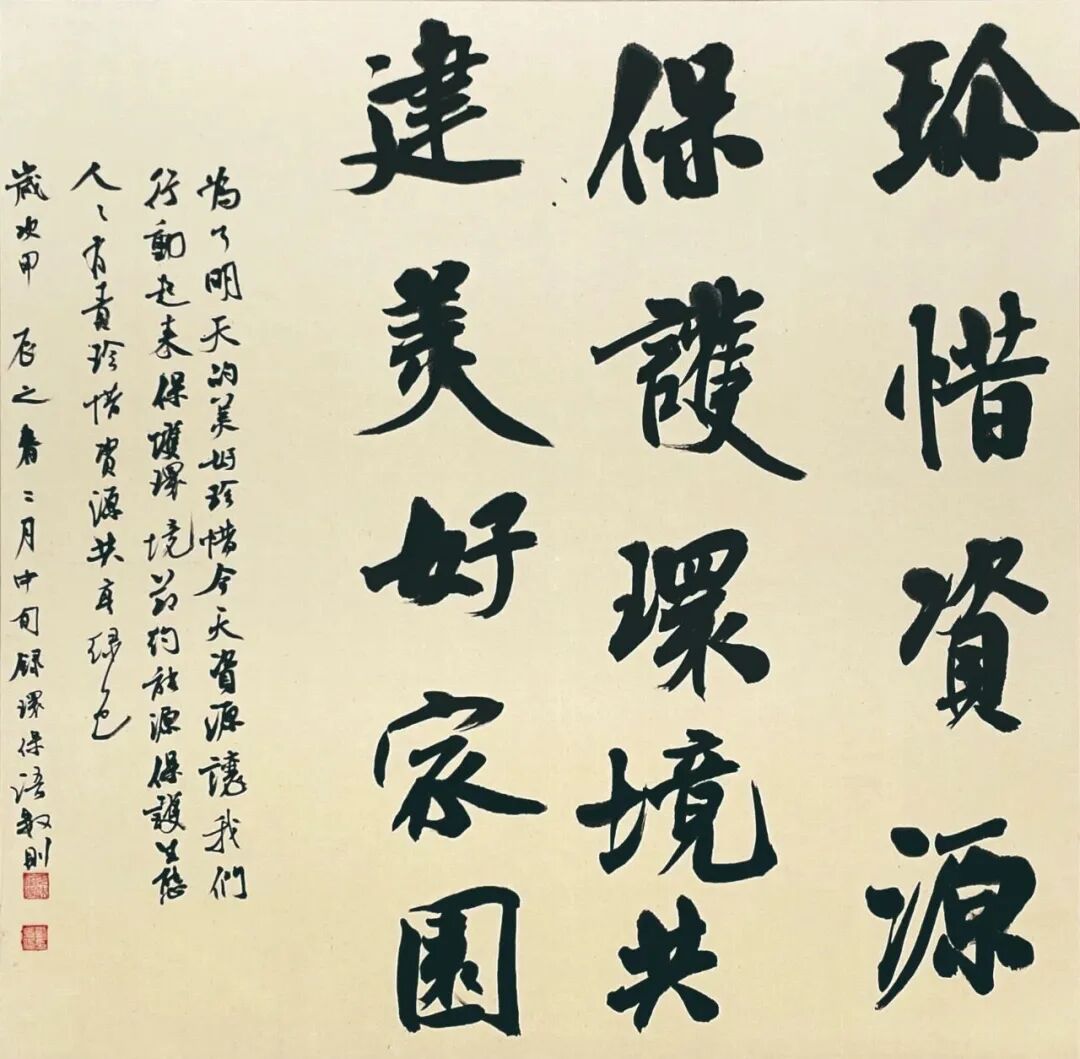 珎惜資源
保護環境共
建美好家園
為了明天的美好珍惜今天資源讓我們
行動起来保護環境節約能源保護生態
人々有責珍惜資源共享绿色
歲次甲辰之春二月中旬録環保語数則